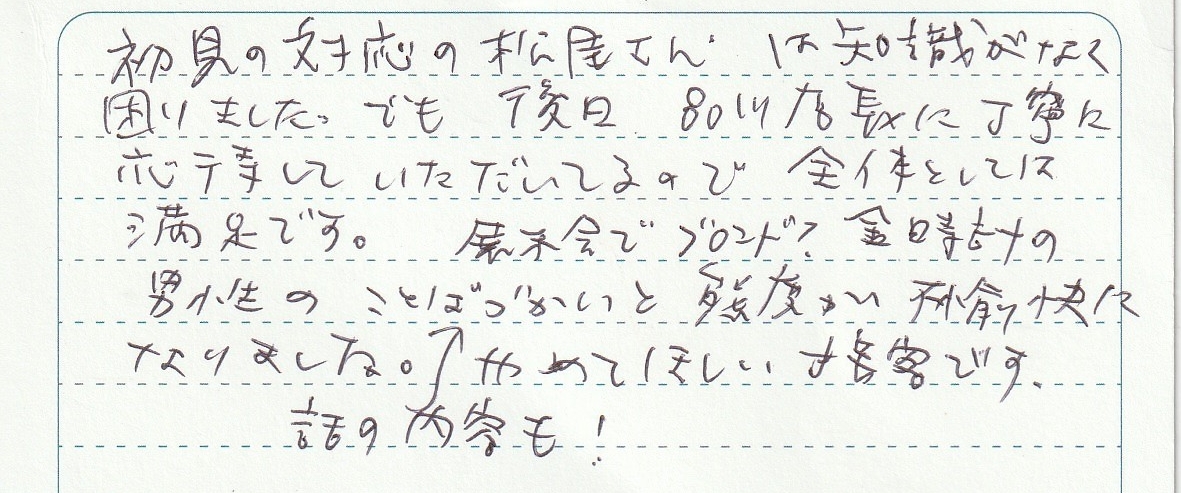 初見の対応の松尾さん は知識がなく
困りました。でも 後日 店長に丁寧に
応答していただいてるので 全体としては
満足です。 展示会でブロンド? 金時計の
男性のことばづかいと態度が 不愉快に
なりました。↑やめてほしい接客です。
話の内容も!